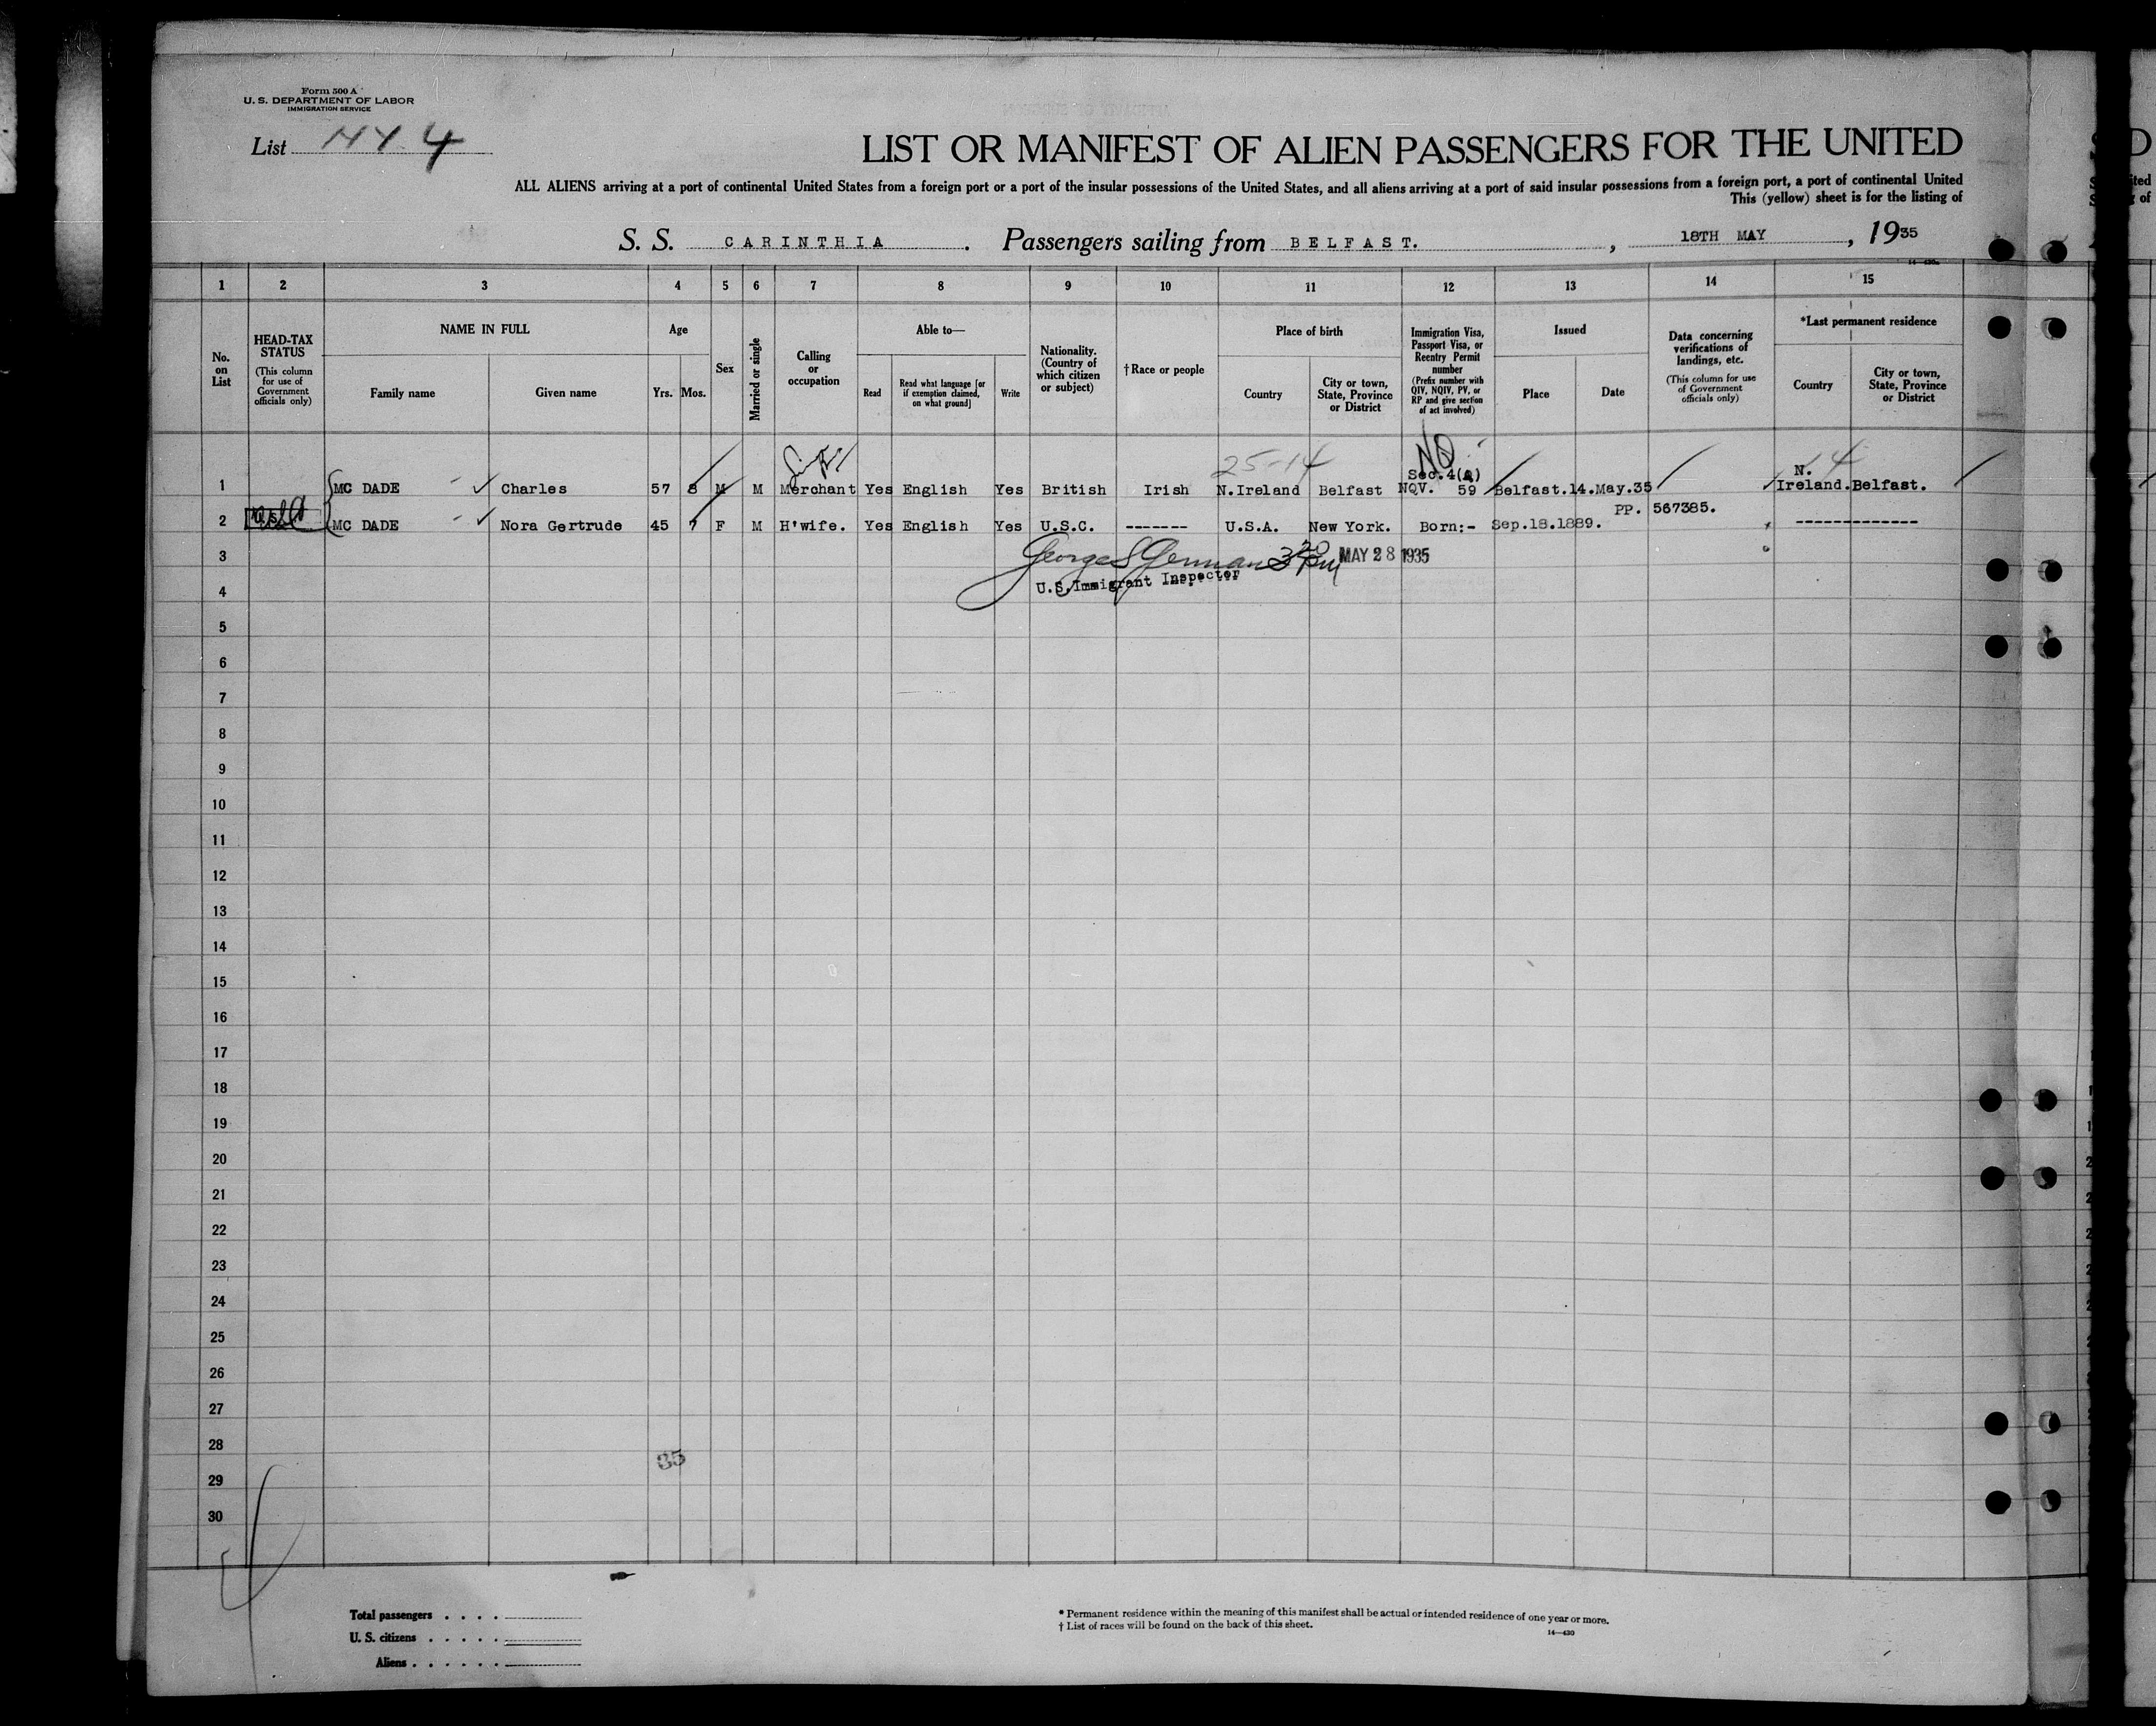 Form 500 A
U. S. DEPARTMENT OF LABOR
IMMIGRATION SERVICE
List NY 4
LIST OR MANIFEST OF ALIEN PASSENGERS FOR THE UNITED
ALL ALIENS arriving at a port of continental United States from a foreign port or a port of the insular possessions of the United States, and all aliens arriving at a port of said insular possessions from a foreign port, a port of continental United
This (yellow) sheet is for the listing of
S. S. CARINTHIA . Passengers sailing from BELFAST. , 18TH MAY , 1935
1 2 3 4 5 6 7 8 9 10 11 12 13 14 15
No. on List
HEAD-TAX STATUS
(This column for use of Government officials only)
NAME IN FULL
Family name
Given name
Age
Yrs. Mos.
Sex
Married or single
Calling or occupation
Able to—
Read
Read what language [or if exemption claimed, on what ground]
Write
Nationality. (Country of which citizen or subject)
†Race or people
Place of birth
Country
City or town, State, Province or District
Immigration Visa, Passport Visa, or Reentry Permit number
(Prefix number with QIV, NQIV, PV, or RP and give section of act involved)
Issued
Place
Date
Data concerning verifications of landings, etc.
(This column for use of Government officials only)
*Last permanent residence
Country
City or town, State, Province or District
25-14
NQ
Sec.4(a)
N. 4
1 MC DADE Charles 57 8 M M Merchant Yes English Yes British Irish N.Ireland Belfast NQV. 59 Belfast.14.May.35 Ireland.Belfast.
PP. 567385.
2 MC DADE Nora Gertrude 45 7 F M H'wife. Yes English Yes U.S.C. ------- U.S.A. New York. Born:- Sep.18.1889. -------------
3 George S German 3 20 Pm MAY 28 1935
U.S.Immigrant Inspector
4
5
6
7
8
9
10
11
12
13
14
15
16
17
18
19
20
21
22
23
24
25
26
27
28
35
29
30
Total passengers . . . .
U. S. citizens . . . . .
Aliens . . . . . .
* Permanent residence within the meaning of this manifest shall be actual or intended residence of one year or more.
† List of races will be found on the back of this sheet.
14—430